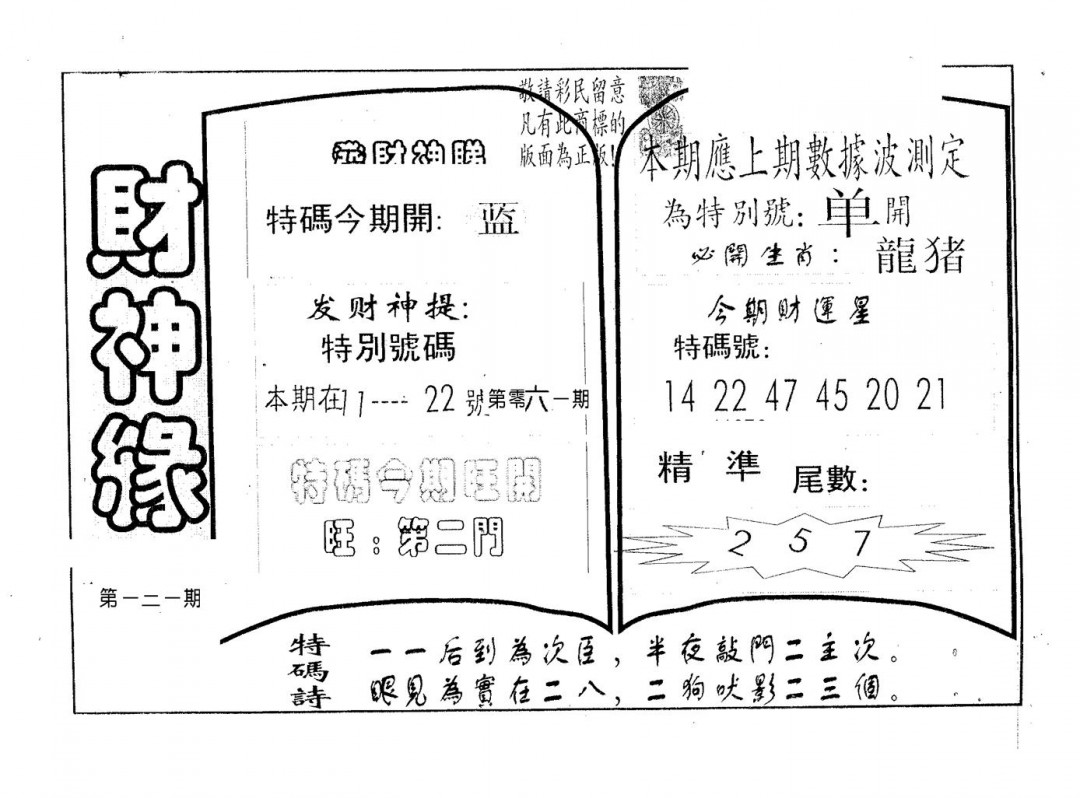 財神緣
第一二一期
敬請彩民留意
凡有此商標的
版面為正版!
特碼今期開: 蓝
发财神提:
特別號碼
本期在11---- 22號第零六一期
特碼今期旺開
旺:第二門
本期應上期數據波測定
為特別號: 单開
必開生肖: 龍猪
今期財運星
特碼號:
14 22 47 45 20 21
精 準 尾數:
2 5 7
特碼詩
一一后到為次臣,半夜敲門二主次。
眼見為實在二八,二狗吠影二三個。